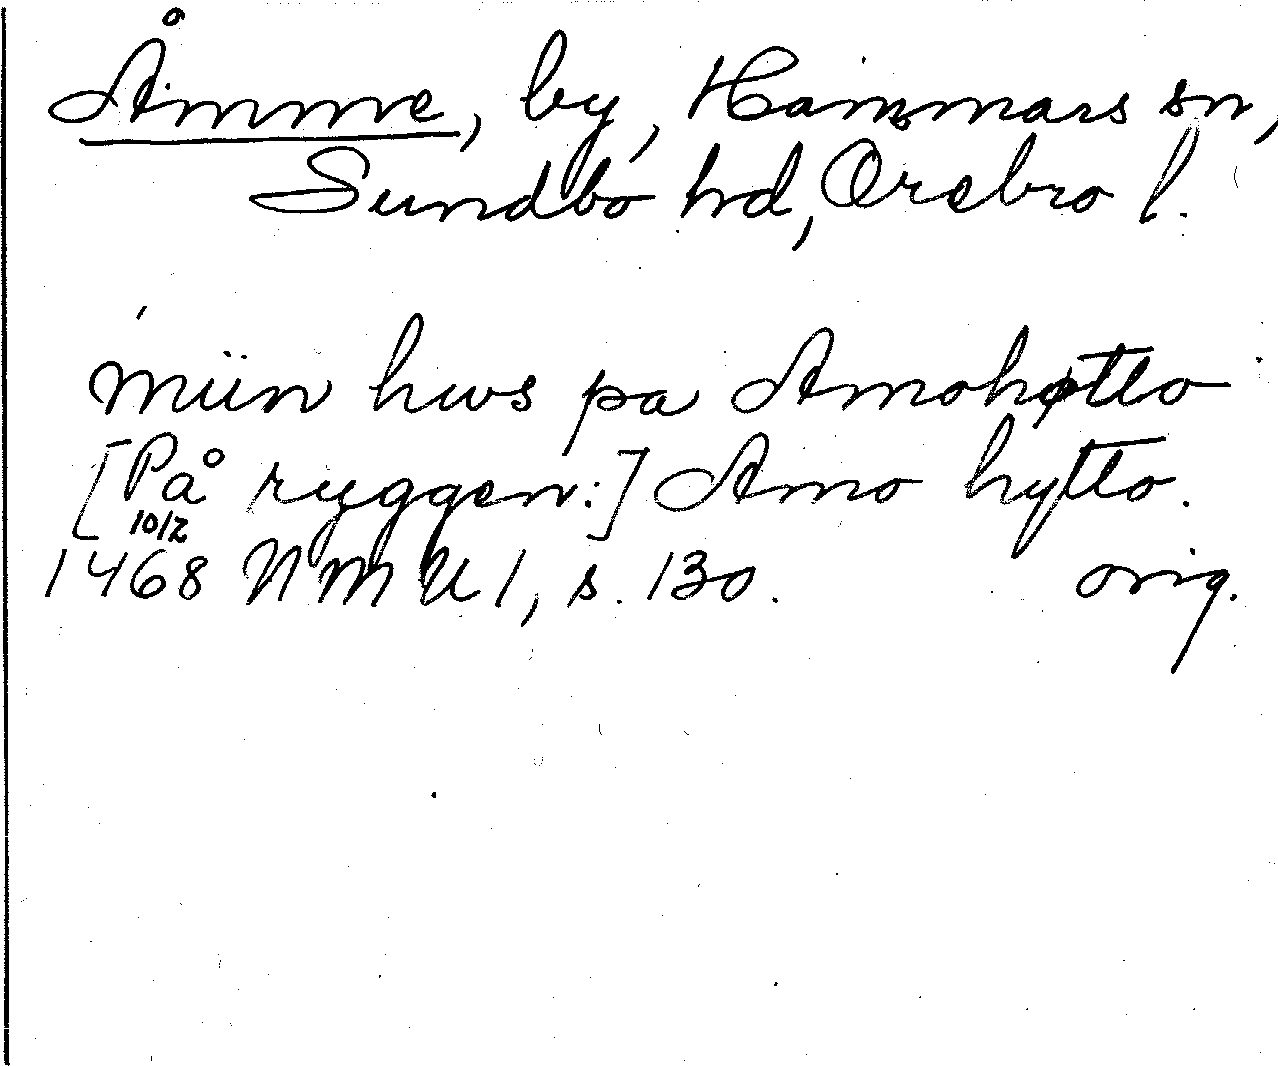 Åmme, by, Hammars sn,
Sundbo hd, Örebro l.
miin hws pa Amohøtto
[På ryggen:] Amo hytto.
10/2
1468 NMU 1, s. 130. orig.